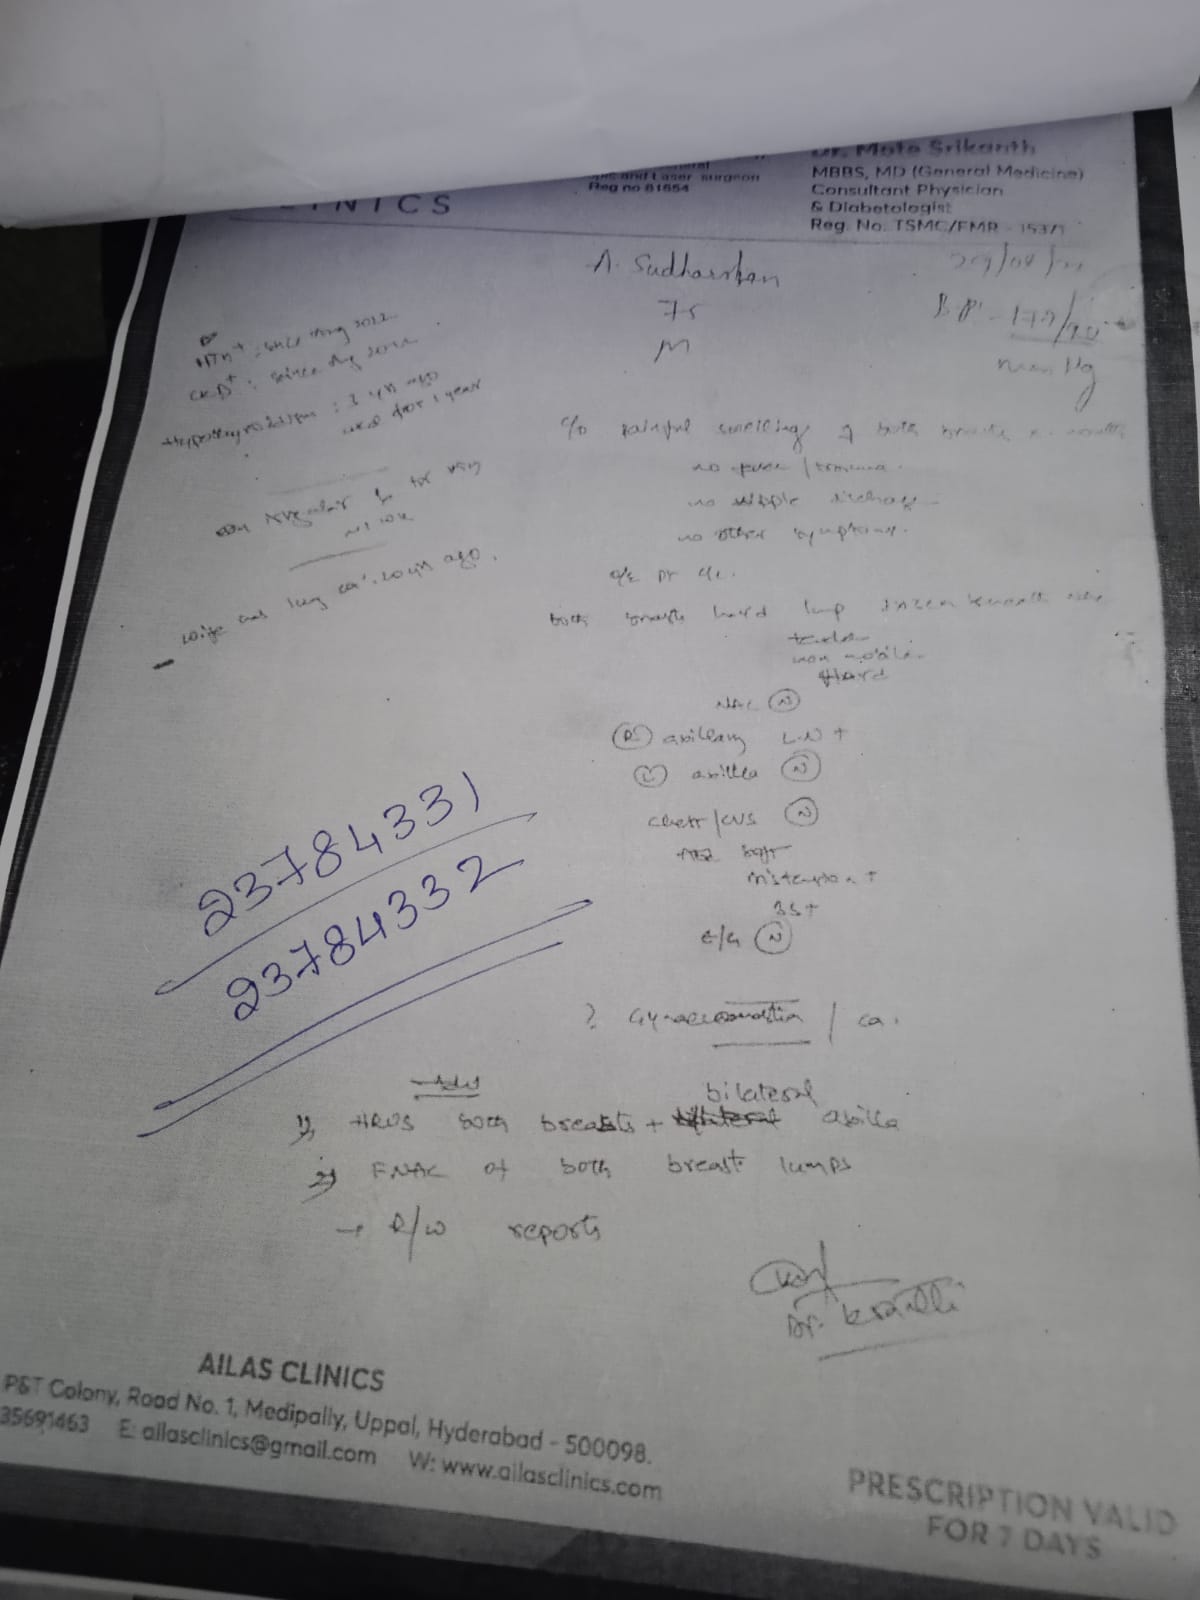 CLINICS
and Laser surgeon
Reg no 81654
Dr. Mote Srikanth
MBBS, MD (General Medicine)
Consultant Physician
& Diabetologist
Reg. No. TSMC/FMR - 15371
A. Sudharshan
75
M
29/04/
BP - 170/90
mm Hg
HTN+ : since 2022
CKD+ : since Aug 2022
Hypothyroidism : 3 yrs ago
used for 1 year
regular
wife had lung ca. 20 yrs ago.
c/o painful swelling of both breasts
no fever / trauma.
no nipple discharge
no other symptoms.
o/e pt c/c.
both breasts hard lump beneath
tender
non mobile
Hard
NAC (N)
(R) axillary L.N +
(L) axilla (N)
chest/CVS (N)
soft
distension +
BS+
E/G (N)
23784331
23784332
? Gynaecomastia / ca.
Adv
1) HRUS both breasts + bilateral axilla
2) FNAC of both breast lumps
→ R/w reports
Dr. Kranthi
AILAS CLINICS
P&T Colony, Road No. 1, Medipally, Uppal, Hyderabad - 500098.
35691463 E: ailasclinics@gmail.com W: www.ailasclinics.com
PRESCRIPTION VALID
FOR 7 DAYS